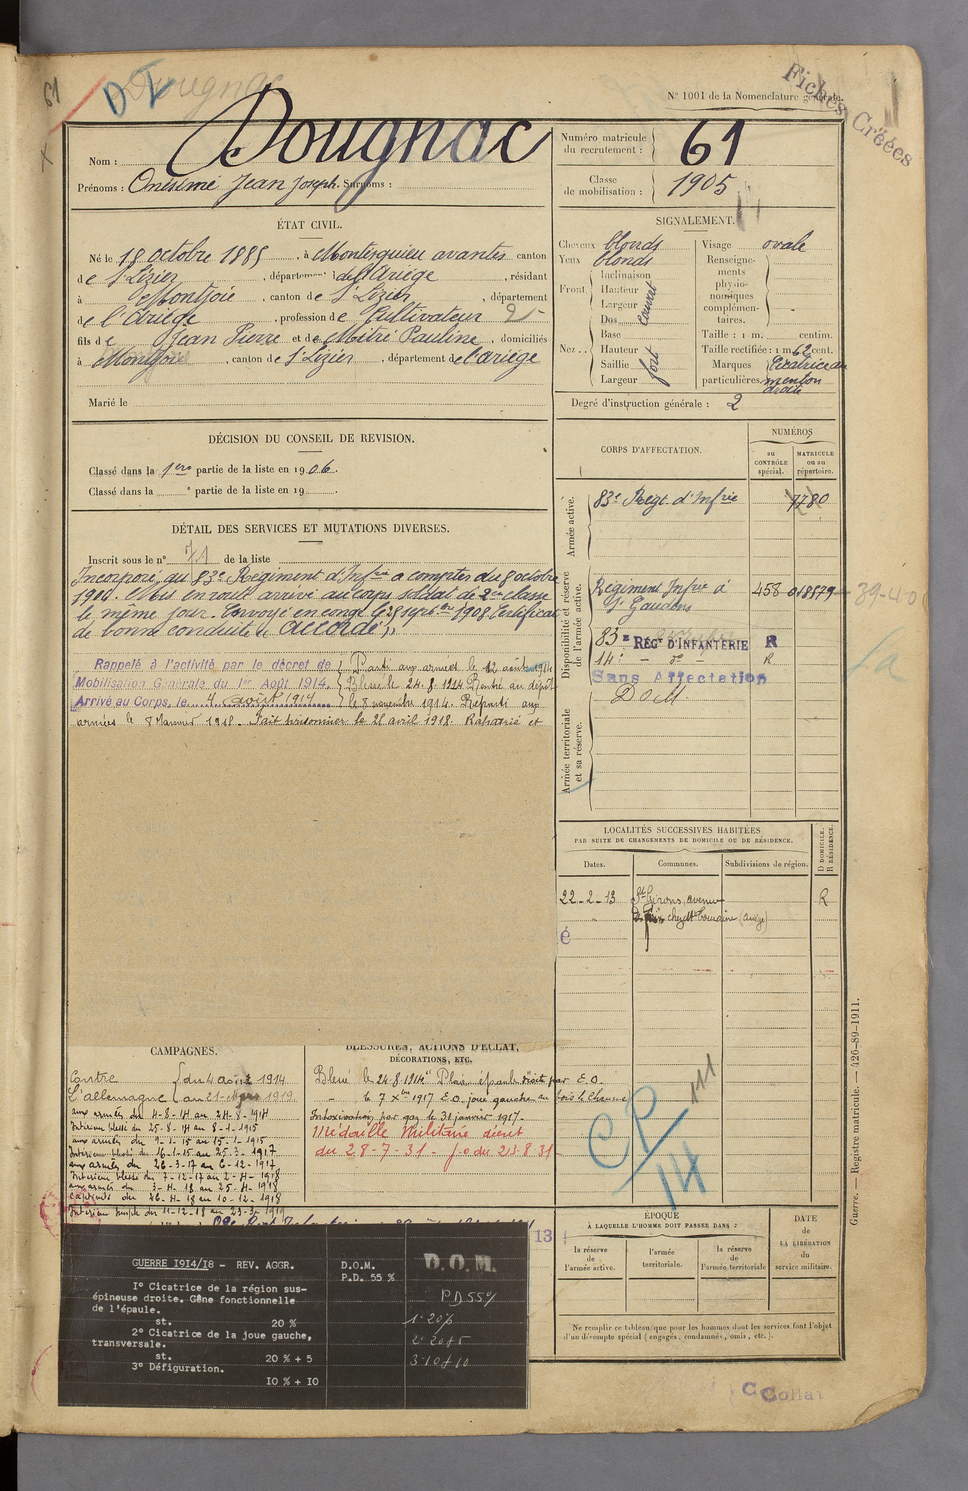 61
DI
Dougnac
Nº 1001 de la Nomenclature générale.
Fiches Créées
Nom : Dougnac
Prénoms : Onésime Jean Joseph. Surnoms :
Numéro matricule du recrutement : 61
Classe de mobilisation : 1905
ÉTAT CIVIL.
Né le 18 octobre 1885, à Montesquieu avantes canton
de St Lizier, département de l'Ariège, résidant
à Montjoie, canton de St Lizier, département
de l'Ariège, profession de Cultivateur
fils de Jean Pierre et de Mitré Pauline, domiciliés
à Montjoie, canton de St Lizier, département de l'ariège
Marié le
SIGNALEMENT.
Cheveux blonds
Yeux blonds
Front. Inclinaison
Hauteur
Largeur
couvert
Nez.. Dos
Base
Hauteur
Saillie
Largeur
fort
Visage ovale
Renseignements physionomiques complémentaires.
Taille : 1 m. centim.
Taille rectifiée : 1 m 62 cent.
Marques particulières Cicatrice au
menton
droite
Degré d'instruction générale : 2
DÉCISION DU CONSEIL DE REVISION.
Classé dans la 1ère partie de la liste en 1906.
Classé dans la e partie de la liste en 19
DÉTAIL DES SERVICES ET MUTATIONS DIVERSES.
Inscrit sous le nº 71 de la liste
Incorporé au 83e Régiment d'Infie a compter du 8 octobre
le même jour. Envoyé en congé le 28 septbre 1908 Certificat
de bonne conduite "Accordé"
Rappelé à l'activité par le décret de
Mobilisation Générale du 1er Août 1914.
Arrivé au Corps, le août 1914
Parti aux armées le 12 août 1914
Blessé le 24.8.1914 Rentré au dépôt
le 8 novembre 1914. Reparti aux
armées le 1918. Fait prisonnier le 26 avril 1918. Rapatrié et
CORPS D'AFFECTATION.
NUMÉROS
au CONTRÔLE spécial.
MATRICULE ou au répertoire.
Armée active.
83e Régt. d'Infrie 7780
Disponibilité et réserve de l'armée active.
Régiment Infrie de St Gaudens 458 018579
39-40
83e RÉGt D'INFANTERIE R
14e - do - R
Sans Affectation
DOM
Armée territoriale et sa réserve.
LOCALITÉS SUCCESSIVES HABITÉES
PAR SUITE DE CHANGEMENTS DE DOMICILE OU DE RÉSIDENCE.
Dates. Communes. Subdivisions de région. D DOMICILE. R RÉSIDENCE.
22-2-13 St Girons, avenue R
(Ariège)
é
CAMPAGNES.
Contre
L'allemagne
du 4 août 1914
au 21 Mars 1919.
aux armées du 4-8-14 au 24-8-1914
Intérieur blessé du 25-8-14 au 8-1-1915
aux armées du 9-1-15 au 15-1-1915
Intérieur blessé du 16-1-15 au 25-3-1917
aux armées du 26-3-17 au 6-12-1917
Intérieur blessé du 7-12-17 au 2-4-1918
aux armées du 3-4-18 au 25-4-1918
captivité du 26-4-18 au 10-12-1918
Intérieur simple du 11-12-18 au 23-3-1919
BLESSURES, ACTIONS D'ÉCLAT,
DÉCORATIONS, ETC.
Blessé le 24-8-1914 "Plaie épaule droite par E.O.
" le 7 Xbre 1917 E.O. joue gauche au bois le Chaume
Intoxication par gaz le 31 janvier 1917.
Médaille Militaire décret
du 28-7-31 - J.O. du 213-8-31
CP/14
ÉPOQUE
À LAQUELLE L'HOMME DOIT PASSER DANS :
la réserve de l'armée active.
l'armée territoriale.
la réserve de l'armée territoriale
DATE de LA LIBÉRATION du service militaire.
Ne remplir ce tableau que pour les hommes dont les services font l'objet
d'un décompte spécial (engagés, condamnés, omis, etc.).
13
GUERRE 1914/18 - REV. AGGR. D.O.M.
P.D. 55 %
1º Cicatrice de la région sus-
épineuse droite. Gêne fonctionnelle
de l'épaule.
st. 20 %
2º Cicatrice de la joue gauche,
transversale.
st. 20 % + 5
3º Défiguration.
10 % + 10
D.O.M.
PD 55%
1º 20%
2º 20+5
3º 10+10
Guerre. — Registre matricule. — 426-89-1911.